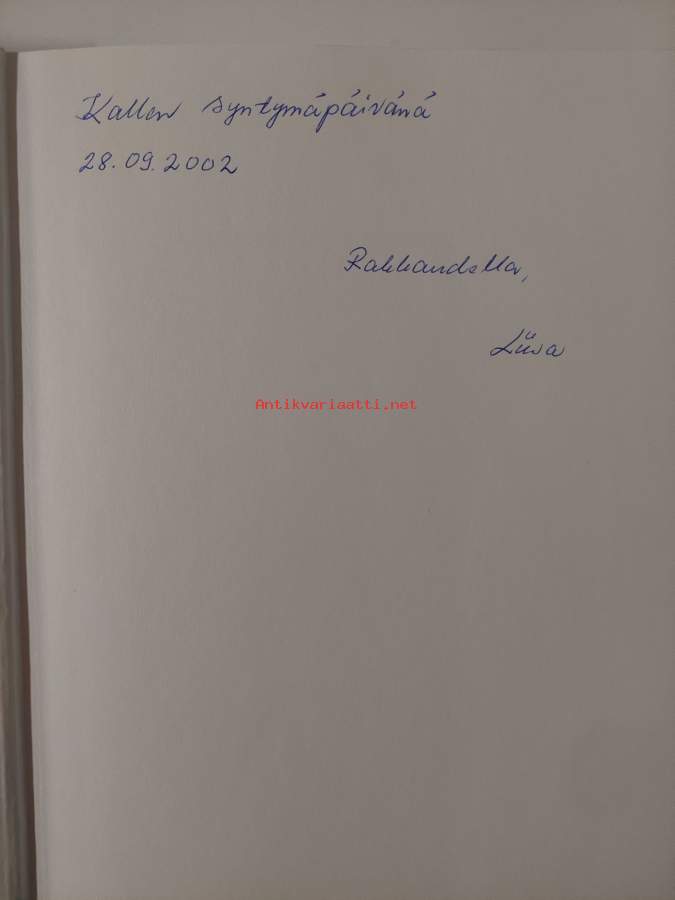 Kallen syntymäpäivänä
28.09.2002
Rakkaudella,
Liisa
Antikvariaatti.net